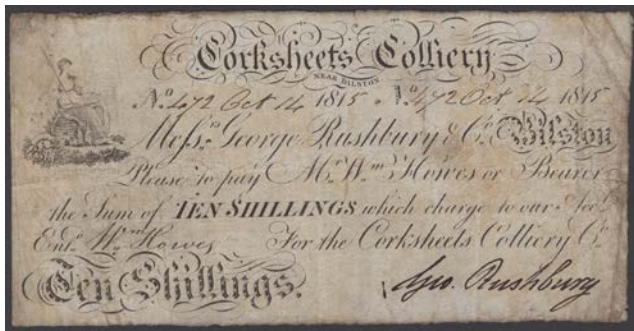 Corksheets Colliery
NEAR BILSTON
No. 472 Oct 14 1815 No. 472 Oct 14 1815
Messrs. George Rushbury & Co. Bilston
Please to pay Mr. Wm. Howes or Bearer
the Sum of TEN SHILLINGS which charge to our Acct.
Entd. Wm. Howes For the Corksheets Colliery Co.
Ten Shillings. Geo. Rushbury